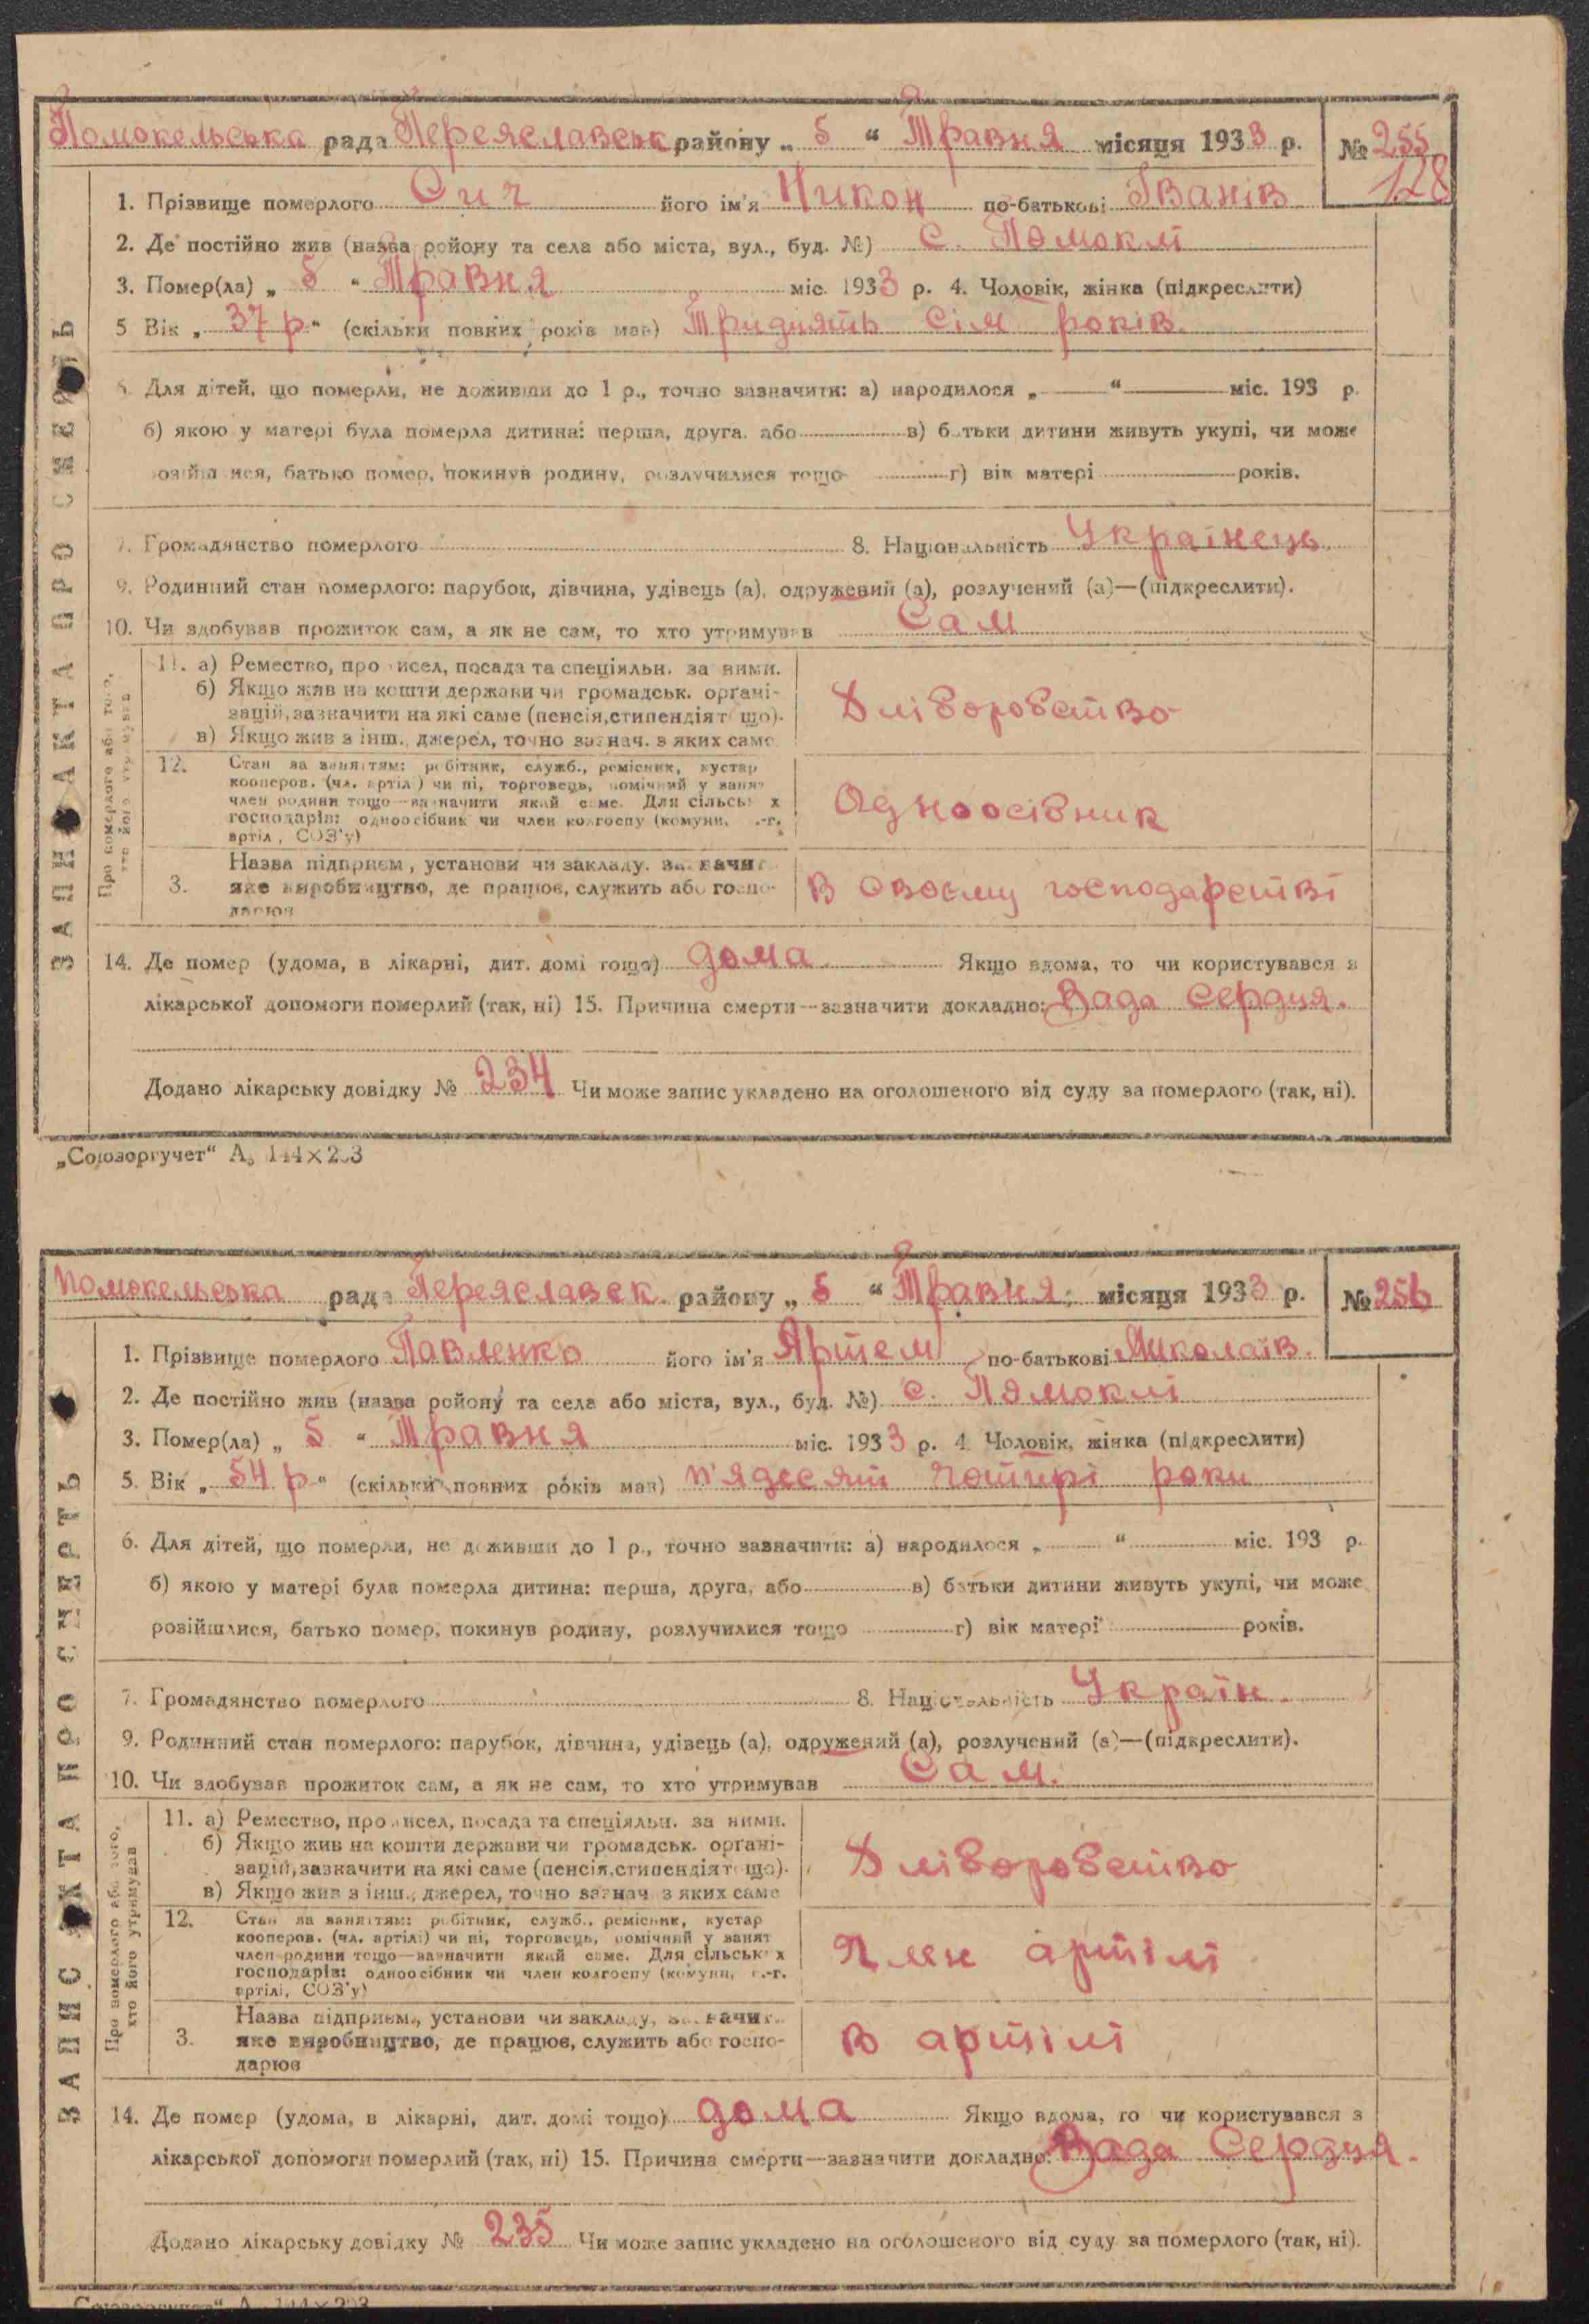 Помокельська рада Переяславськ району „ 5 “ Травня місяця 1933 р. № 255
128
1. Прізвище померлого Сич його ім'я Никон по-батькові Іванів
2. Де постійно жив (назва району та села або міста, вул., буд. №) с. Помоклі
3. Помер(ла) „ 5 “ Травня міс. 1933 р. 4. Чоловік, жінка (підкреслити)
5 Вік „ 37 р “ (скільки повних років мав) Тридцять сім років.
6. Для дітей, що померли, не доживши до 1 р., точно зазначити: а) народилося „ “ міс. 193 р.
б) якою у матері була померла дитина: перша, друга, або в) батьки дитини живуть укупі, чи може
розійшлися, батько помер, покинув родину, розлучилися тощо г) вік матері років.
7. Громадянство померлого 8. Національність Українець
9. Родинний стан померлого: парубок, дівчина, удівець (а), одружений (а), розлучений (а)—(підкреслити).
10. Чи здобував прожиток сам, а як не сам, то хто утримував Сам
ЗАПИС АКТА ПРО СМЕРТЬ
Про померлого або того, хто його утримував
11. а) Ремество, промисел, посада та спеціяльн. за ними.
б) Якщо жив на кошти держави чи громадськ. органі-
зацій, зазначити на які саме (пенсія, стипендія тощо).
в) Якщо жив з інш., джерел, точно зазнач. з яких саме
Хліборобство
12. Стан за заняттям: робітник, служб., ремісник, кустар
кооперов. (чл. артілі) чи ні, торговець, помічний у занят
член родини тощо—зазначити який саме. Для сільськ х
господарів: одноосібник чи член колгоспу (комуни, с.-г.
артіл, СОЗ'у)
Одноосібник
3. Назва підприєм., установи чи закладу, зазначит
яке виробництво, де працює, служить або госпо-
дарює
В своєму господарстві
14. Де помер (удома, в лікарні, дит. домі тощо) дома Якщо вдома, то чи користувався з
лікарської допомоги померлий (так, ні) 15. Причина смерти—зазначити докладно: Вада Сердця.
Додано лікарську довідку № 234 Чи може запис укладено на оголошеного від суду за померлого (так, ні).
„Союзоргучет“ А5 144×203
Помокельська рада Переяславск. району „ 5 “ Травня місяця 1933 р. № 256
1. Прізвище померлого Павленко його ім'я Артем по-батькові Миколаїв.
2. Де постійно жив (назва району та села або міста, вул., буд. №) с. Помоклі
3. Помер(ла) „ 5 “ Травня міс. 1933 р. 4. Чоловік, жінка (підкреслити)
5. Вік „ 54 р “ (скільки повних років мав) п'ядесят чотирі роки
6. Для дітей, що померли, не доживши до 1 р., точно зазначити: а) народилося „ “ міс. 193 р.
б) якою у матері була померла дитина: перша, друга, або в) батьки дитини живуть укупі, чи може
розійшлися, батько помер, покинув родину, розлучилися тощо г) вік матері років.
7. Громадянство померлого 8. Національність Україн.
9. Родинний стан померлого: парубок, дівчина, удівець (а), одружений (а), розлучений (а)—(підкреслити).
10. Чи здобував прожиток сам, а як не сам, то хто утримував Сам.
ЗАПИС АКТА ПРО СМЕРТЬ
Про померлого або того, хто його утримував
11. а) Ремество, промисел, посада та спеціяльн. за ними.
б) Якщо жив на кошти держави чи громадськ. органі-
зацій, зазначити на які саме (пенсія, стипендія тощо).
в) Якщо жив з інш., джерел, точно зазнач. з яких саме
Хліборобство
12. Стан за заняттям: робітник, служб., ремісник, кустар
кооперов. (чл. артілі) чи ні, торговець, помічний у занят
член родини тощо—зазначити який саме. Для сільськ х
господарів: одноосібник чи член колгоспу (комуни, с.-г.
артілі, СОЗ'у)
Член артілі
3. Назва підприєм., установи чи закладу, зазначит
яке виробництво, де працює, служить або госпо-
дарює
В артілі
14. Де помер (удома, в лікарні, дит. домі тощо) дома Якщо вдома, то чи користувався з
лікарської допомоги померлий (так, ні) 15. Причина смерти—зазначити докладно: Вада Сердця.
Додано лікарську довідку № 235 Чи може запис укладено на оголошеного від суду за померлого (так, ні).
„Союзоргучет“ А5 144×203